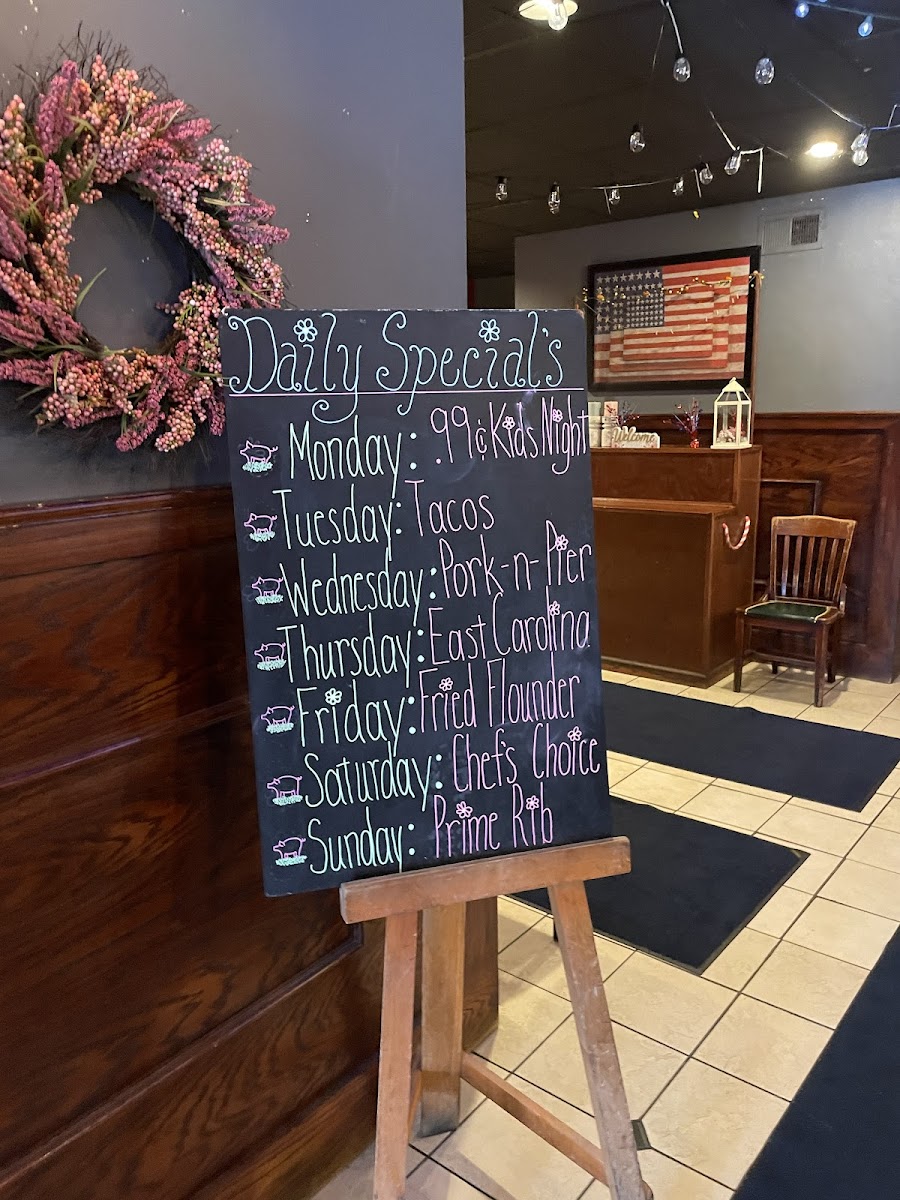 Daily Special's
Monday: .99¢ Kids Night
Tuesday: Tacos
Wednesday: Pork-n-Pier
Thursday: East Carolina
Friday: Fried Flounder
Saturday: Chef's Choice
Sunday: Prime Rib
Welcome